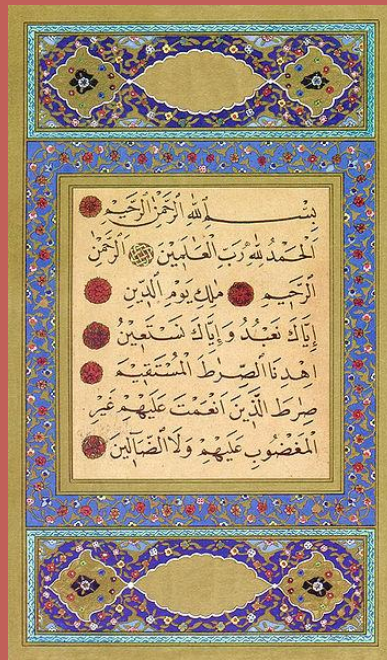 بِسْمِ ٱللّٰهِ ٱلرَّحْمٰنِ ٱلرَّحِيمِ
اَلْحَمْدُ لِلّٰهِ رَبِّ ٱلْعَالَمِينَ ٱلرَّحْمٰنِ
ٱلرَّحِيمِ مٰلِكِ يَوْمِ ٱلدِّينِ
اِيَّاكَ نَعْبُدُ وَاِيَّاكَ نَسْتَعِينُ
اِهْدِنَا ٱلصِّرَاطَ ٱلْمُسْتَقِيمَ
صِرَاطَ ٱلَّذِينَ اَنْعَمْتَ عَلَيْهِمْ غَيْرِ
ٱلْمَغْضُوبِ عَلَيْهِمْ وَلَا ٱلضَّآلِّينَ